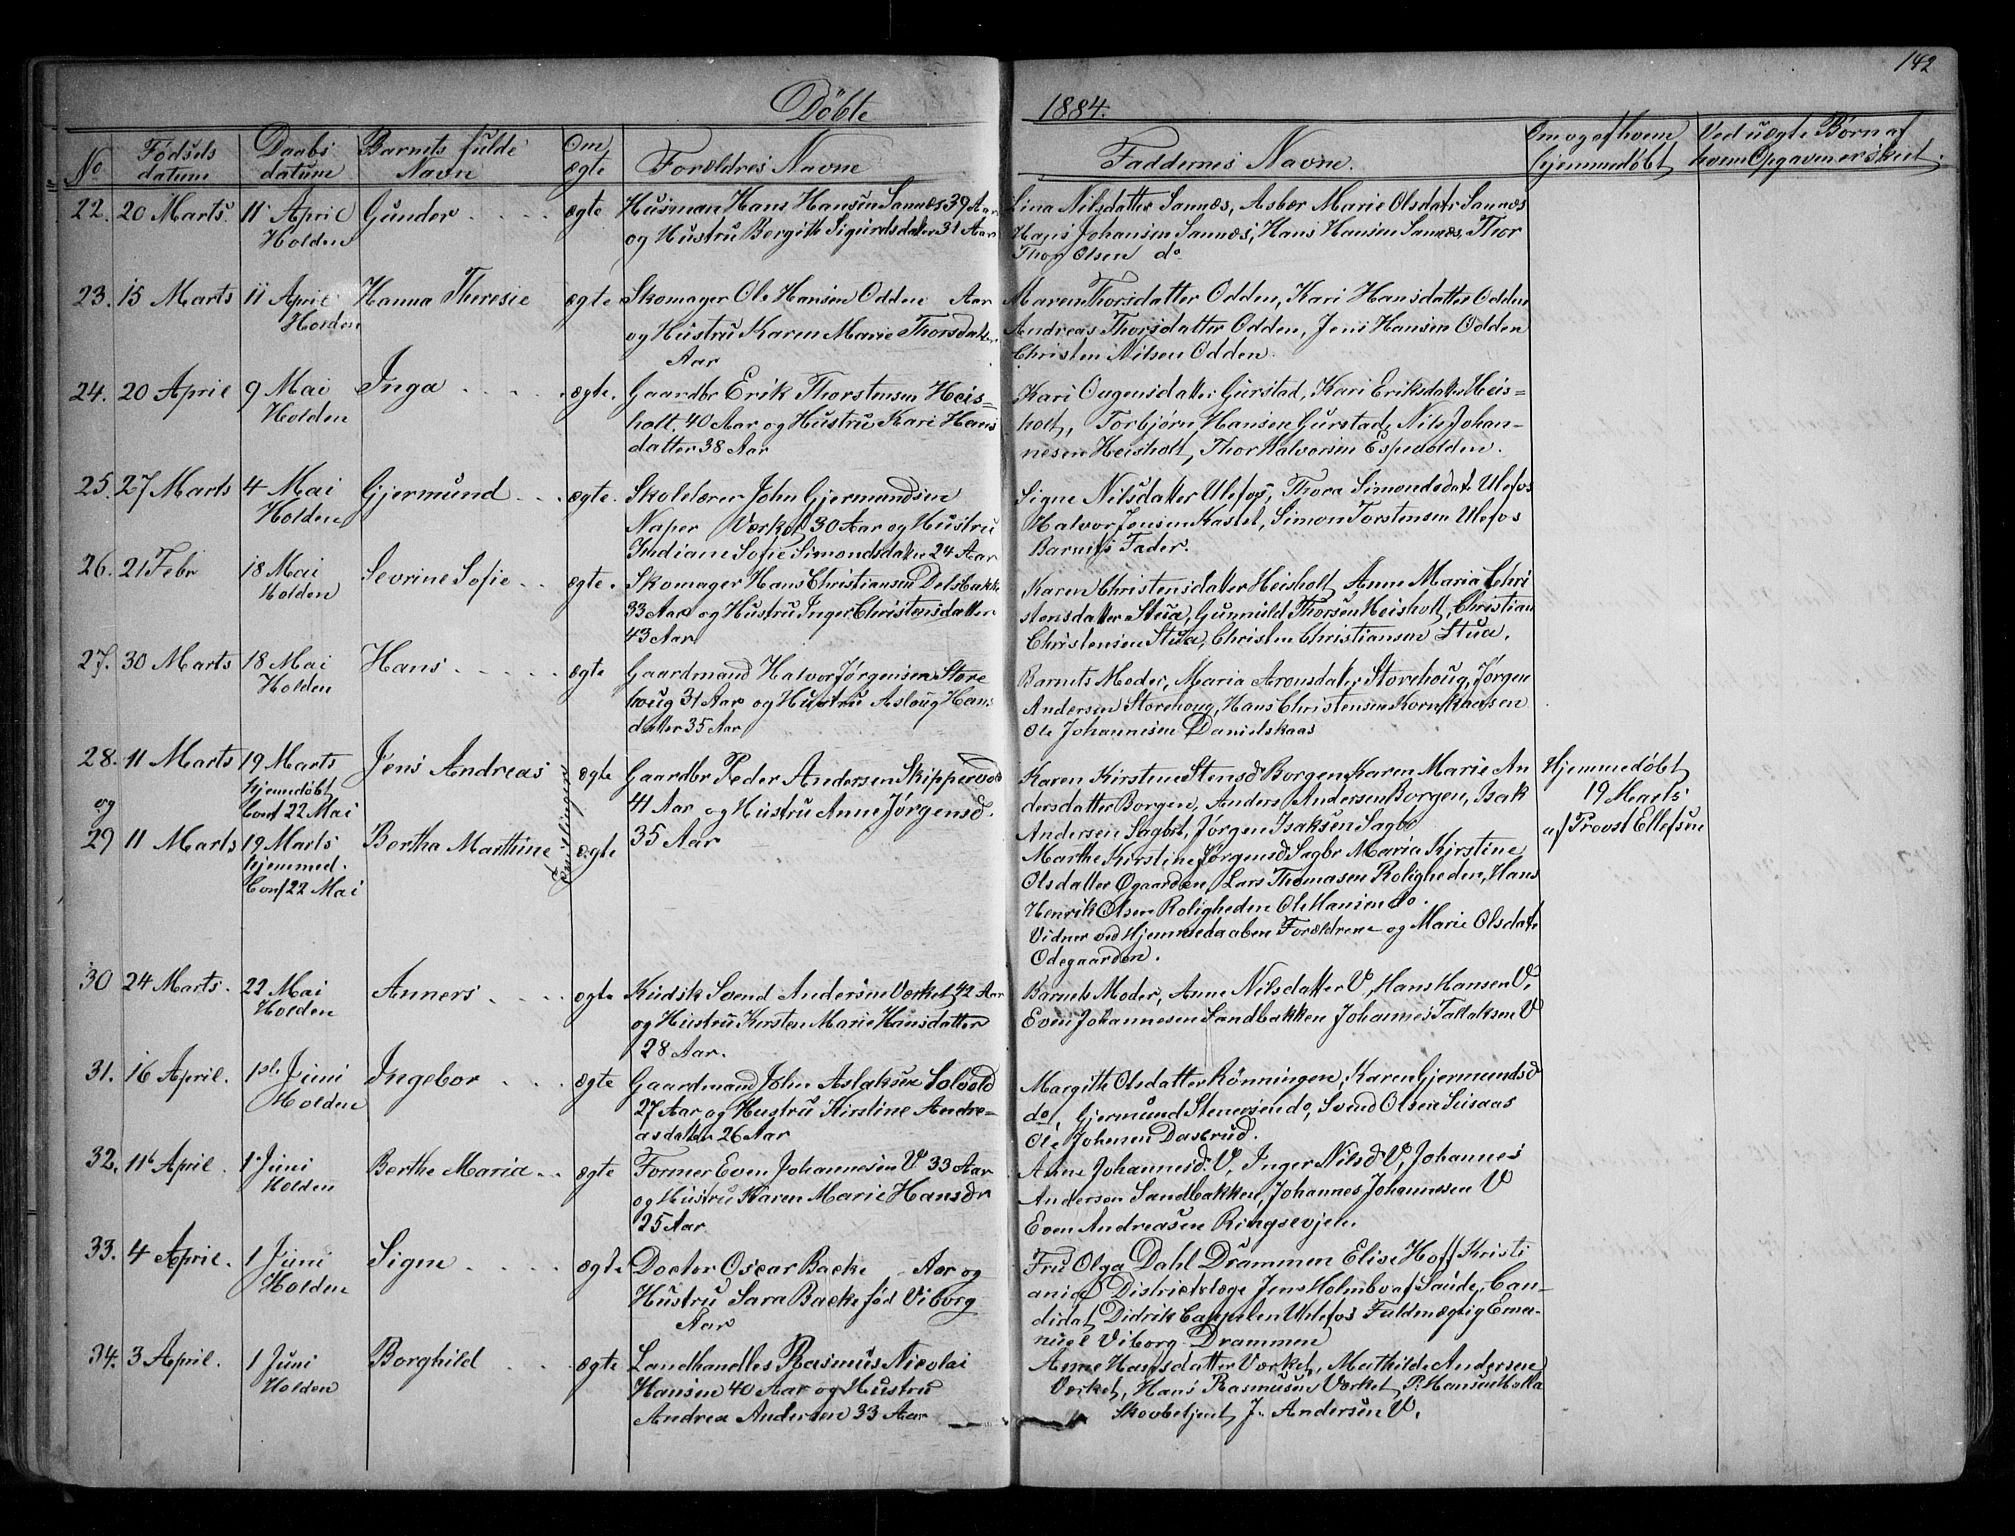 142
Döbte 1884.
No Fødsels datum Daabs datum Barnets fulde Navn Om ægte Forældres Navne Faddernes Navne. Om og af hvem hjemmedøbt Ved uægte Børn af hvem Opgaven er skeet.
22. 20 Marts. 11 April Gunder ægte Husman Hans Hansen Sannes 39 Aar Lina Nilsdatter Sannes, Asbør Marie Olsdatr Sannes
Holden og Hustru Bergith Sigurdsdater 31 Aar Hans Johansen Sannes, Hans Hansen Sannes, Thor
Thor Olsen do
23. 15 Marts 11 April Hanna Theresie ægte Skomager Ole Hansen Odden Aar Maren Thorsdatter Odden, Kari Hansdatter Odden
Holden og Hustru Karen Marie Thorsdater Andreas Thorsdatter Odden, Jens Hansen Odden
Aar Christen Nilsen Odden.
24. 20 April 9 Mai Inga ægte. Gaardbr Erik Thorstensen Heis= Kari Ougensdatter Gurstad, Kari Eriksdatter Heis=
Holden holt. 40 Aar og Hustru Kari Hans holt, Torbjørn Hansen Gurstad, Nils Johan-
datter 38 Aar nesen Heisholt, Thor Halvorsen Espedalen.
25. 27 Marts 4 Mai Gjermund ægte. Skolelærer John Gjermundsen Signe Nilsdatter Ulefos, Thora Simondsdatr Ulefos
Holden Naper Værket 30 Aar og Hustru Halvor Jensen Kastet, Simon Torstensen Ulefos
Indiane Sofie Simondsdatter 24 Aar Barnets Fader.
26. 21 Febr 18 Mai Sevrine Sofie ægte. Skomager Hans Christiansen Delsbakke Karen Christensdatter Heisholt, Anne Maria Chri
Holden 33 Aar og Hustru Inger Christensdatter stensdatter Stua, Gunnuld Thorsen Heisholt, Christian
43 Aar Christensen Stua, Christen Christiansen Stua.
27. 30 Marts 18 Mai Hans ægte Gaardmand Halvor Jørgensen Store Barnets Moder, Maria Aronsdatr Storehoug, Jørgen
Holden houg 31 Aar og Hustru Asloug Hans Andersen Storehoug, Hans Christensen Kornkhaasen
datter 35 Aar Ole Johannesen Danielskaas
28. 11 Marts 19 Marts Jens Andreas Tvillinger ægte Gaardbr Peder Andersen Skippervold Karen Kirstine Stensd Borgen Karen Marie An Hjemmedøbt
hjemmedøbt 41 Aar og Hustru Anne Jørgensd. dersdatter Borgen, Anders Andersen Borgen, Isak 19 Marts
og Conf 22 Mai 35 Aar Andersen Sagbr, Jørgen Isaksen Sagbr af Provst Ellefsen
29 11 Marts 19 Marts Bertha Marthine ægte Marthe Kirstine Jørgensd Sagbr Maria Kirstine
hjemmed. Olsdatter Øgaarden, Lars Thomasen Roligheden, Hans
Conf 22 Mai Henrik Olsen Roligheden Ole Hansen do.
Vidner ved Hjemmedaaben Forældrene og Marie Olsdatr
Ødegaarden.
30 24 Marts. 22 Mai Anners ægte Kudsk Svend Andersen Værket 42 Aar Barnets Moder, Anne Nilsdatter V, Hans Hansen V,
Holden og Hustru Kirsten Marie Hansdatter Even Johannesen Sandbakken Johannes Tallaksen V
28 Aar.
31. 16 April. 1ste Juni Ingebor ægte Gaardmand John Aslaksen Solvold Margitte Olsdatter Rønningen, Karen Gjermundsd
Holden 27 Aar og Hustru Kirstine Andre= do, Gjermund Stenersen do, Svend Olsen Susaas
asdatter 26 Aar Ole Johnsen Dasrud.
32. 11t April. 1 Juni Berthe Maria ægte Former Even Johannesen V 33 Aar Anne Johannesd. V, Inger Nilsd V, Johannes
Holden og Hustru Karen Marie Hansdr Andersen Sandbakken, Johannes Johannesen V
25 Aar Even Andreasen Ringsevjen.
33. 4 April. 1 Juni Signe ægte Doctor Oscar Backe Aar og Fru Olga Dahl Drammen Elise Hoff Kristi
Holden Hustru Sara Backe fød Viborg ania Districtslæge Jens Holmboe af Saude, Can-
Aar didat Didrik Cappelen Ulefos Fuldmægtig Ema-
nuel Viborg Drammen
34. 3 April. 1 Juni Borghild ægte Landhandler Rasmus Nicolai Anne Hansdatter Værket, Mathilde Andersen
Holden Hansen 40 Aar og Hustru Værket, Hans Rasmusen Værket P. Hansen Holla
Andrea Andersen 33 Aar Skovbetjent J. Andersen V.